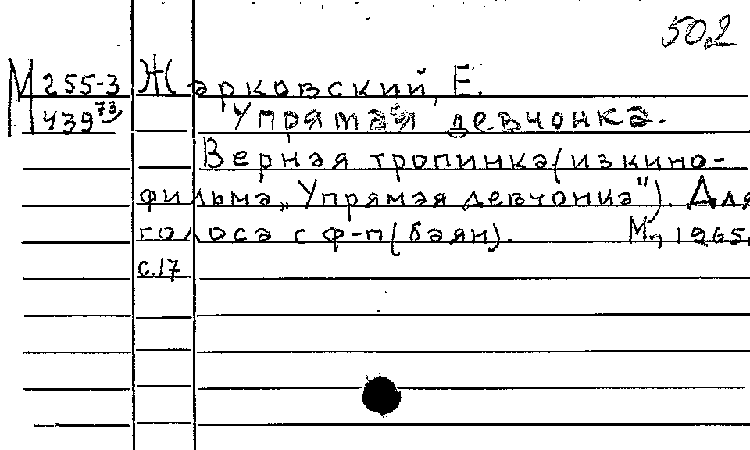 502
М 255-3 Жарковский, Е.
439 73 Упрямая девчонка.
Верная тропинка (из кино-
фильма „Упрямая девчонка"). Для
голоса с ф-п (баян). М., 1965.
с.17